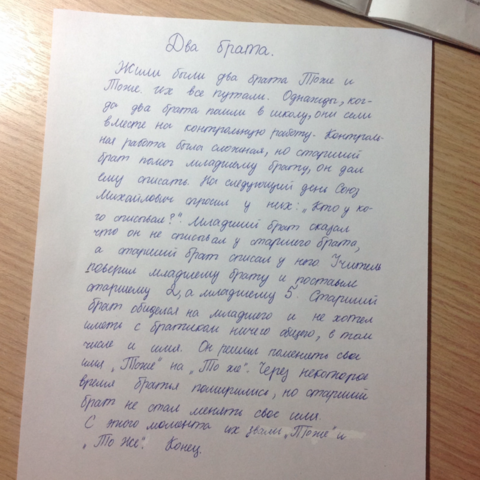 Два брата.
Жили были два брата Тоже и
Тоже. их все путали. Однажды, ког-
да два брата пошли в школу, они сели
вместе на контрольную работу. Контроль-
ная работа была сложная, но старший
брат помог младшему брату, он дал
ему списать. На следующий день Союз
Михайлович спросил у них: „Кто у ко-
го списывал?“. Младший брат сказал
что он не списывал у старшего брата,
а старший брат списал у него Учитель
поверил младшему брату и поставил
старшему 2, а младшему 5. Старший
брат обиделся на младшего и не хотел
иметь с братиком ничего общего, в том
числе и имя. Он решил поменять свое
имя „Тоже“ на „То же“. Через некоторое
время братья помирились, но старший
брат не стал менять свое имя.
С этого момента их звали „Тоже“ и
„То же“. Конец.